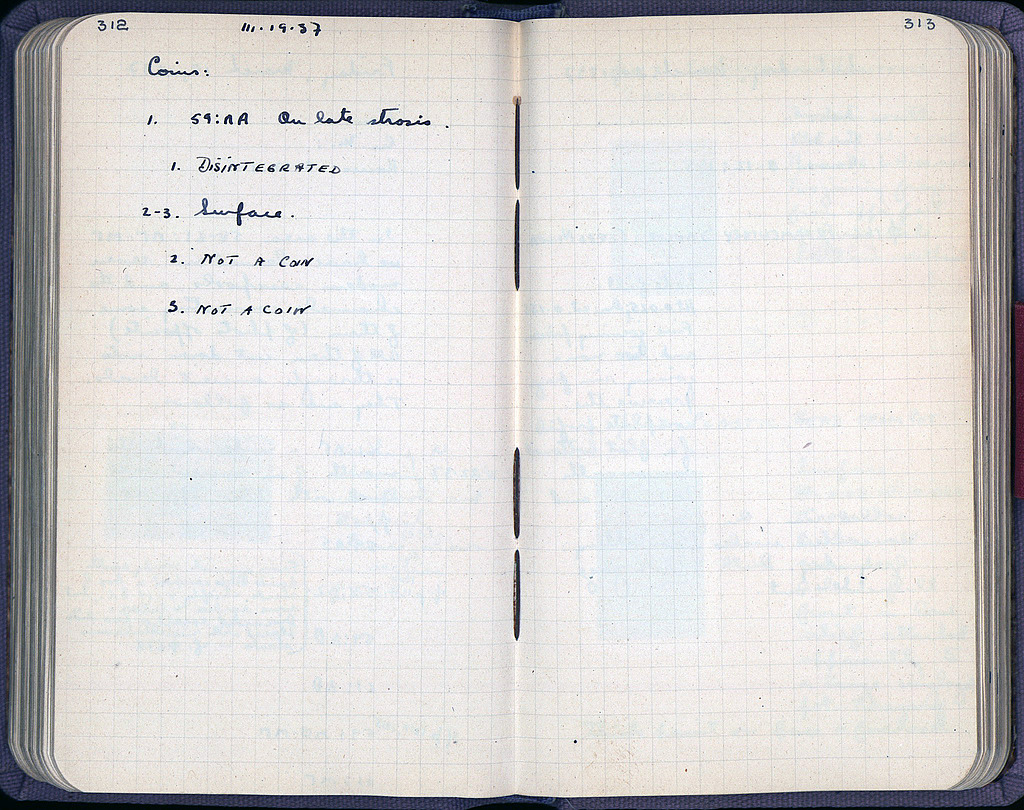 312
III·19·37
Coins:
1. 59:AA On late strosis.
1. DISINTEGRATED
2-3. Surface.
2. NOT A COIN
3. NOT A COIN
313